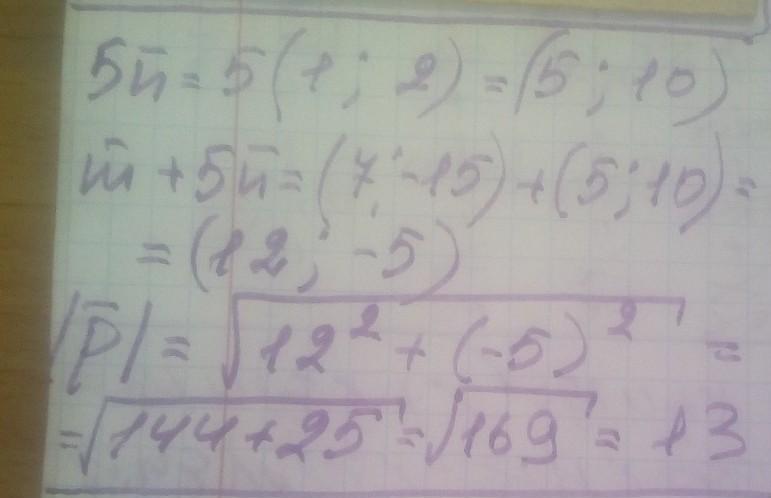 5n̄ = 5(1; 2) = (5; 10)
m̄ + 5n̄ = (7; -15) + (5; 10) =
= (12; -5)
|p̄| = √(12² + (-5)²) =
= √144+25 = √169 = 13